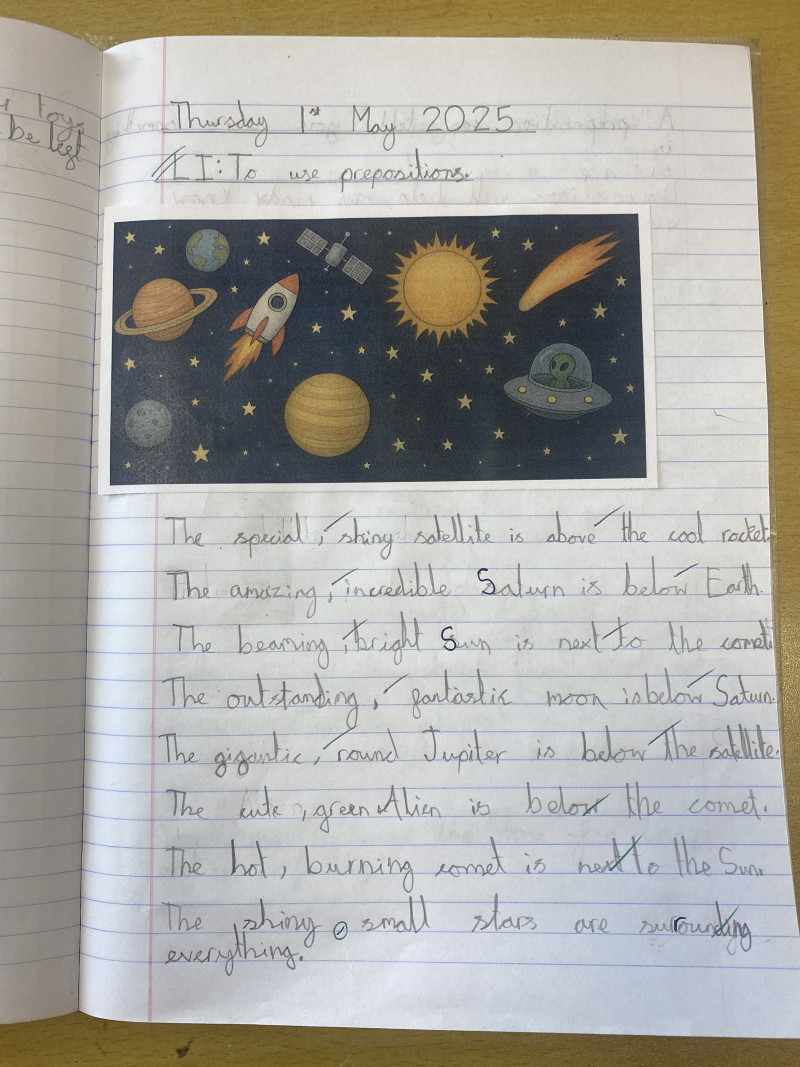 toys
be left
Thursday 1st May 2025
LI: To use prepositions.
The special, shiny satellite is above the cool rocket.
The amazing, incredible Saturn is below Earth.
The beaming, bright Sun is next to the comet.
The outstanding, fantastic moon is below Saturn.
The gigantic, round Jupiter is below the satellite.
The cute, green Alien is below the comet.
The hot, burning comet is next to the Sun.
The shiny small stars are surrounding
everything.